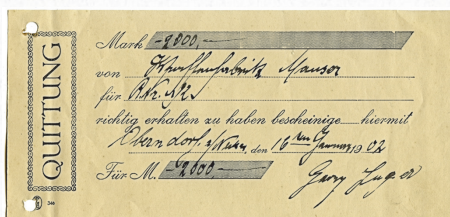 QUITTUNG
Mark -2000,-
von Waffenfabrik Mauser
für
richtig erhalten zu haben bescheinige hiermit
Oberndorf a/Neckar, den 16ten Januar 1902
Für M. -2000,-
Georg Luger
346